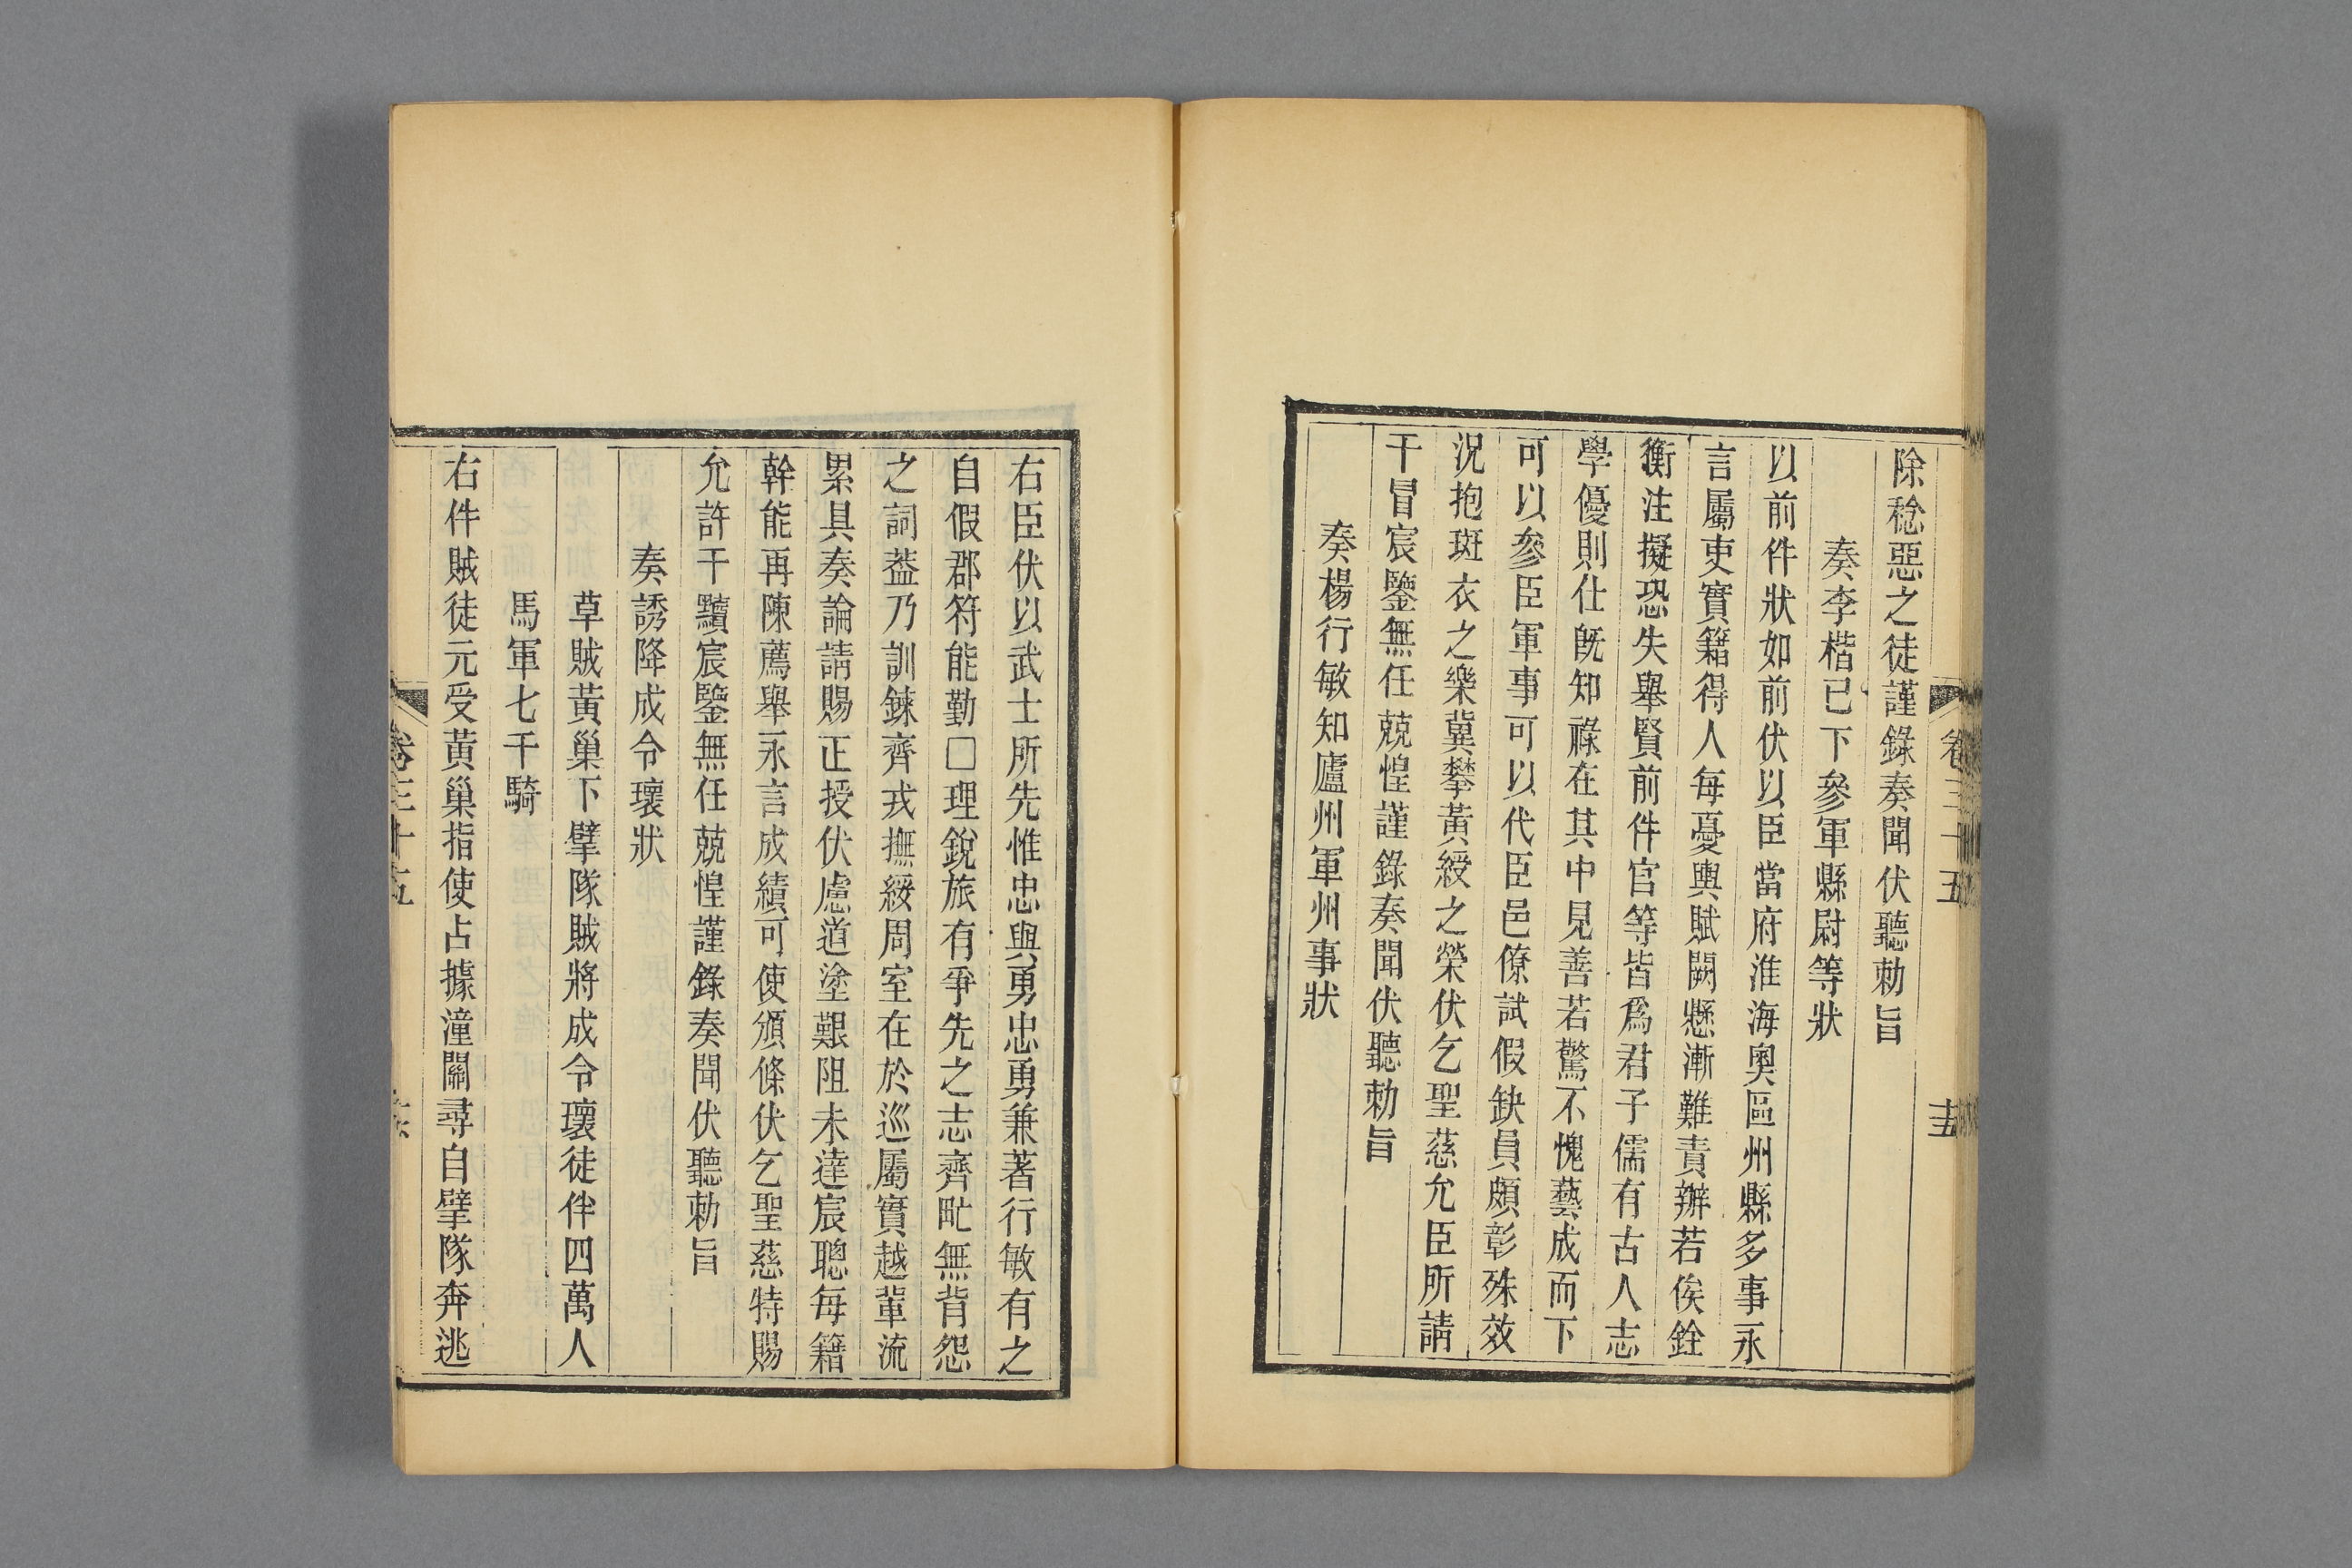 卷三十五
十五
除稔惡之徒謹錄奏聞伏聽勅旨
奏李楷已下參軍縣尉等狀
以前件狀如前伏以臣當府淮海奧區州縣多事永
言屬吏實籍得人每憂輿賦闕懸漸難責辦若俟銓
衡注擬恐失舉賢前件官等皆爲君子儒有古人志
學優則仕旣知祿在其中見善若驚不愧藝成而下
可以參臣軍事可以代臣邑僚試假缺員頗彰殊效
況抱斑衣之樂冀攀黃綬之榮伏乞聖慈允臣所請
干冒宸鑒無任兢惶謹錄奏聞伏聽勅旨
奏楊行敏知廬州軍州事狀
右臣伏以武士所先惟忠與勇忠勇兼著行敏有之
自假郡符能勤□理銳旅有爭先之志齊甿無背怨
之詞葢乃訓鍊齊戎撫綏周室在於巡屬實越輩流
累具奏論請賜正授伏慮道塗艱阻未達宸聰每籍
幹能再陳薦舉永言成績可使頒條伏乞聖慈特賜
允許干黷宸鑒無任兢惶謹錄奏聞伏聽勅旨
奏誘降成令瓌狀
草賊黃巢下擘隊賊將成令瓌徒伴四萬人
馬軍七千騎
右件賊徒元受黃巢指使占據潼關尋自擘隊奔逃
卷三十五